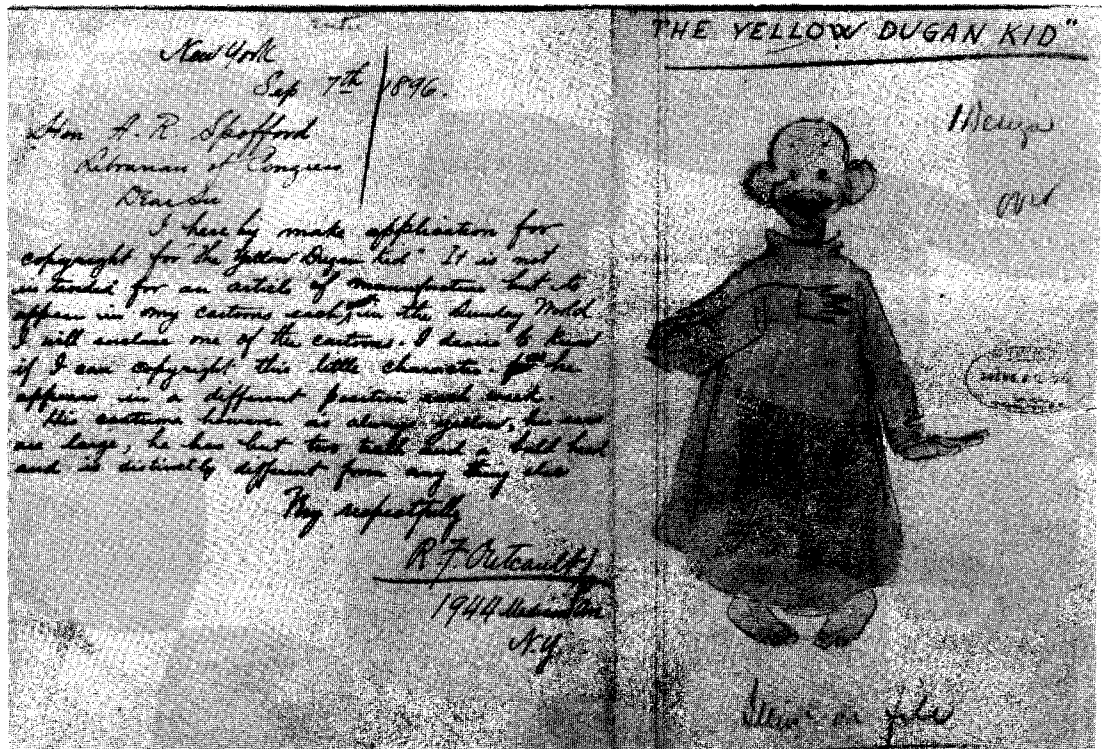 New York
Sep 7th 1896.
Hon A. R. Spofford
Librarian of Congress
Dear Sir
I hereby make application for
copyright for "the Yellow Dugan Kid" It is not
intended for an article of manufacture but to
appear in my cartoons each in the Sunday World
I will enclose one of the cartoons. I desire to know
if I can copyright this little character. he
appears in a different position each week.
His costume however is always yellow, his ears
are large, he has but two teeth and a bald head
and is distinctly different from any thing else
Very respectfully
R F Outcault
1944 Madison Ave
N.Y.
"THE YELLOW DUGAN KID"
over
on file